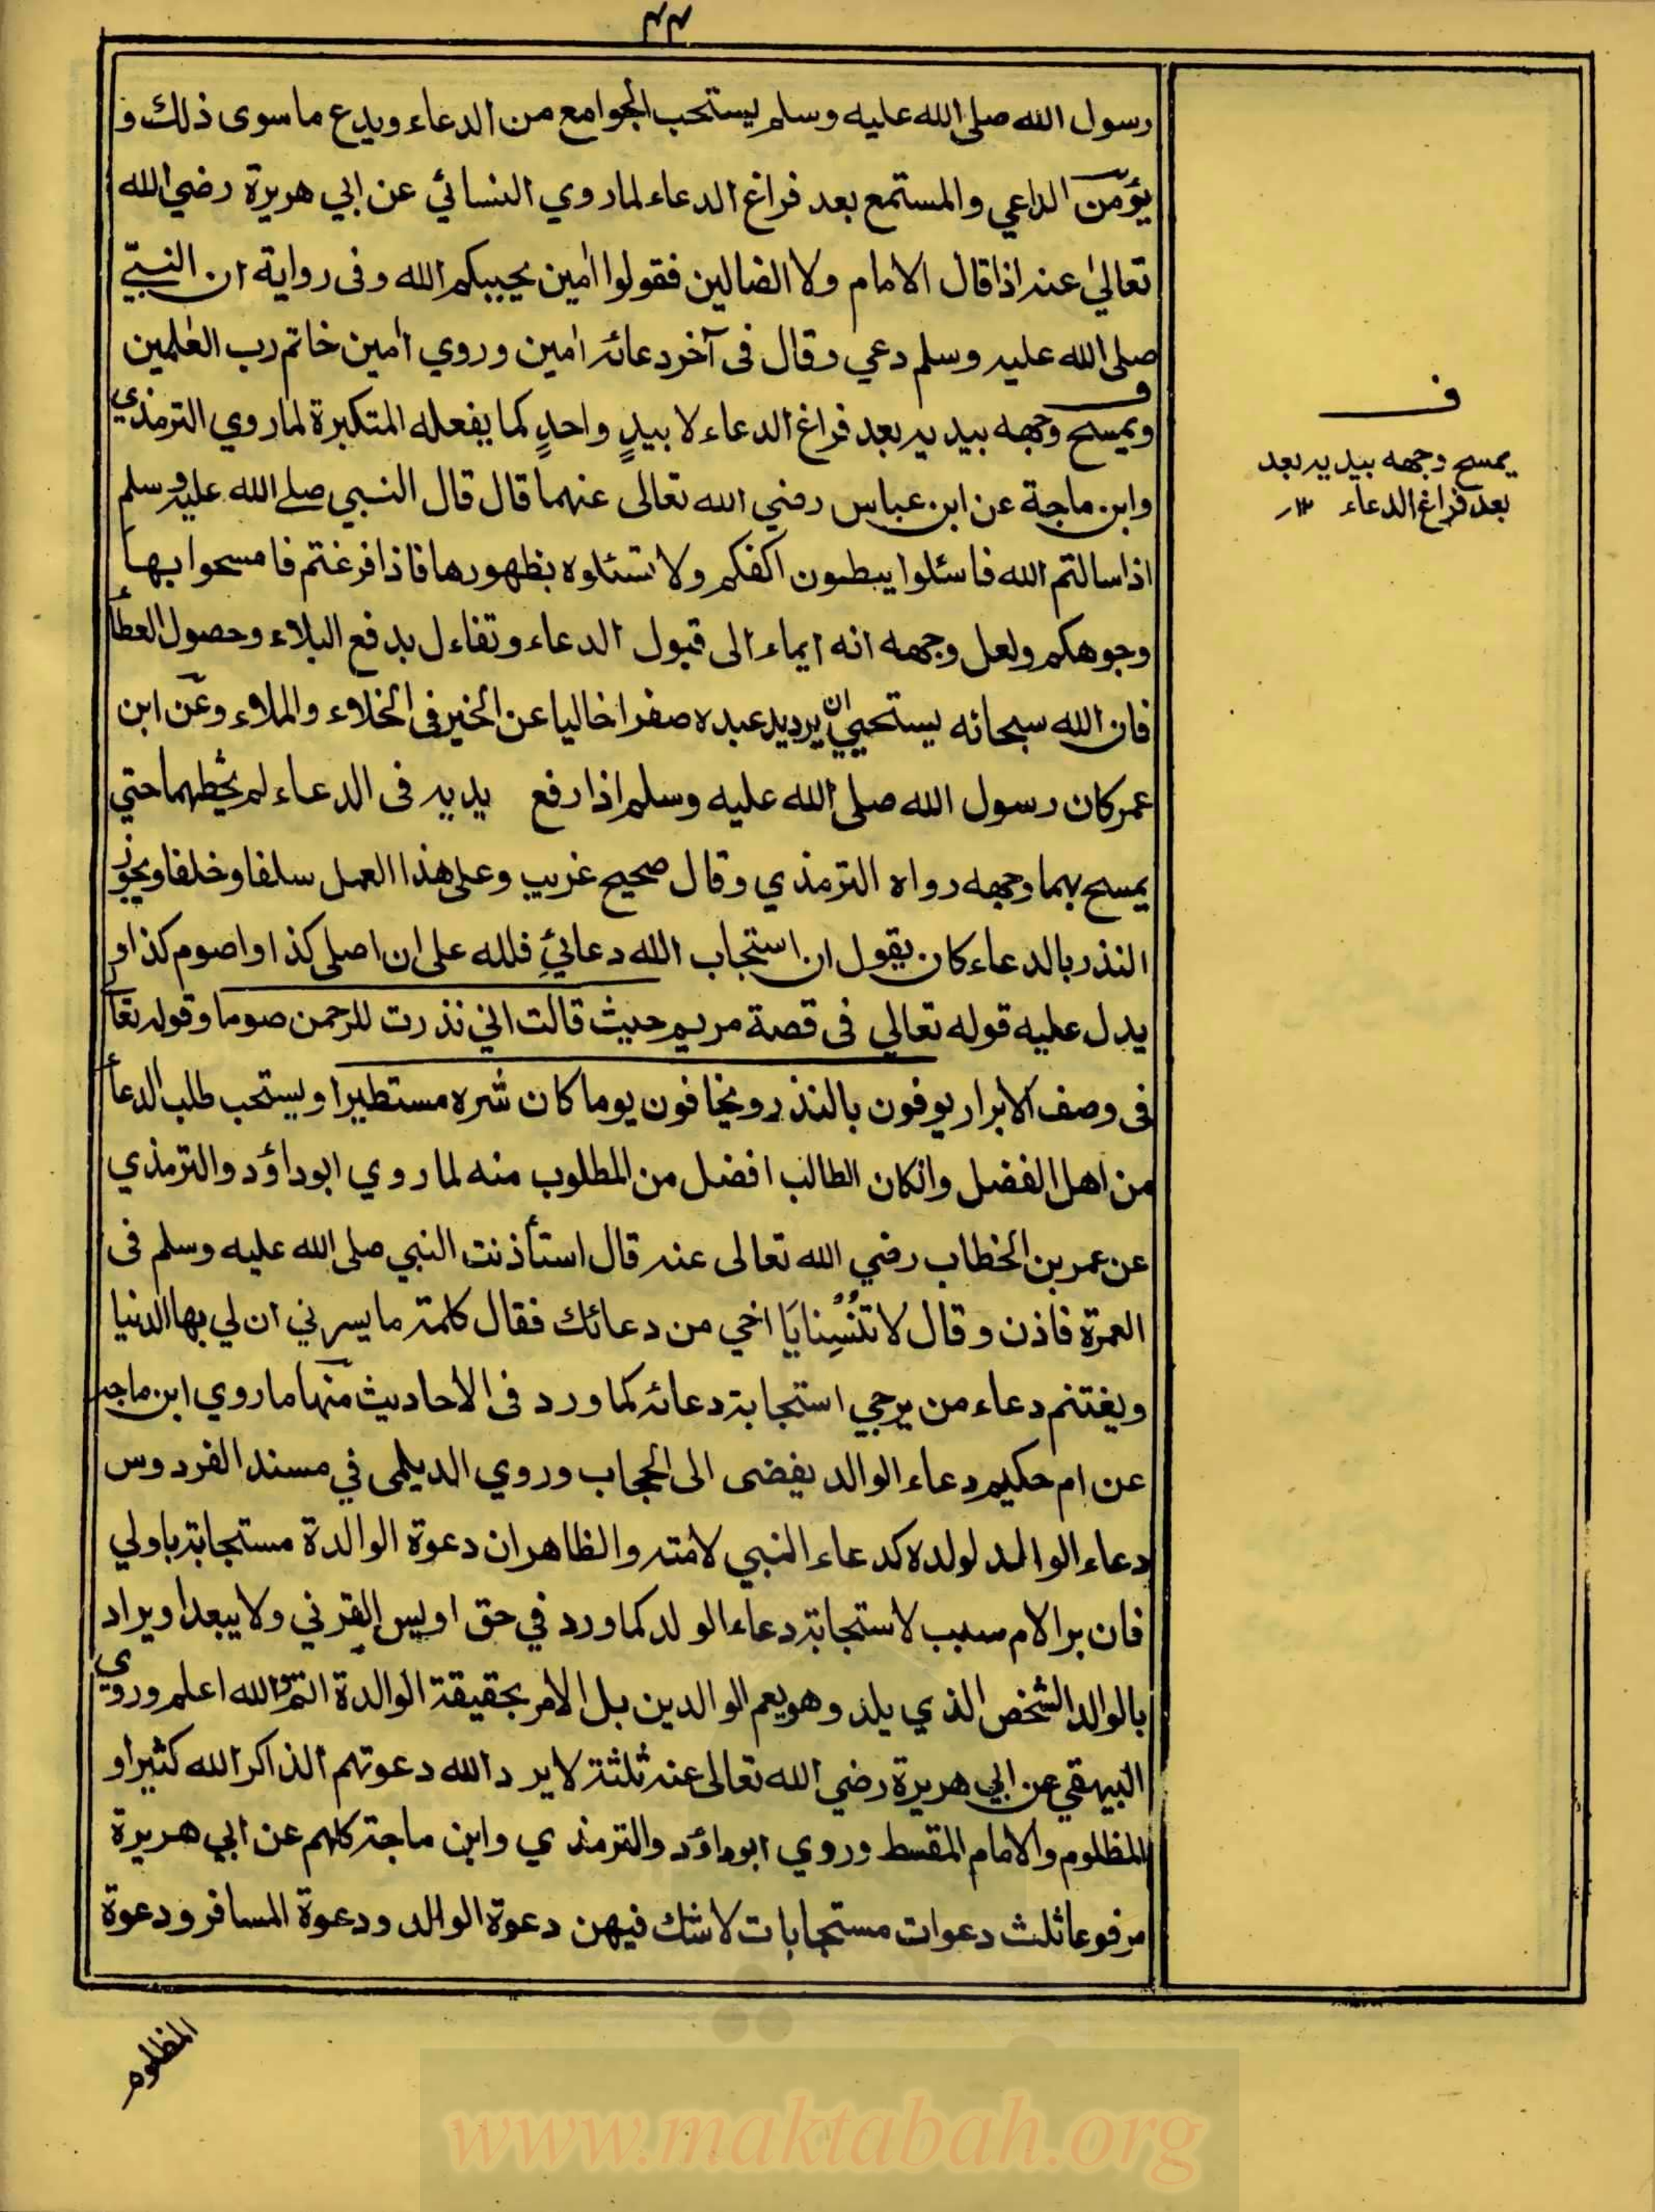 ٤٤
رسول الله صلى الله عليه وسلم يستحب الجوامع من الدعاء ويدع ماسوى ذلك و
يؤمّن الداعي والمستمع بعد فراغ الدعاء لما روي النسائي عن ابي هريرة رضي الله
تعالىٰ عنه اذا قال الامام ولا الضالين فقولوا اٰمين يجيبكم الله وفى رواية ان النبيّ
صلى الله عليه وسلم دعي وقال فى آخر دعائه اٰمين وروي اٰمين خاتم رب العٰلمين
ويمسح وجهه بيديه بعد فراغ الدعاء لا بيدٍ واحدٍ كما يفعله المتكبرة لما روي الترمذي
وابن ماجة عن ابن عباس رضي الله تعالى عنهما قال قال النبي صلے الله عليه وسلم
اذا سالتم الله فاسئلوا ببطون اكفكم ولا تسئلوه بظهورها فاذا فرغتم فامسحوا بها
وجوهكم ولعل وجهه انه ايماء الى قبول الدعاء وتفاءل بدفع البلاء وحصول العطأ
فان الله سبحانه يستحيي ان يرد يد عبده صفرا خاليا عن الخير فى الخلاء والملاء وعن ابن
عمر كان رسول الله صلى الله عليه وسلم اذا رفع يديه فى الدعاء لم يحطهما حتي
يمسح بهما وجهه رواه الترمذي وقال صحيح غريب وعلى هذا العمل سلفا وخلفا ويجوز
النذر بالدعاء كان يقول ان استجاب الله دعائيِ فلله على ان اصلى كذا او اصوم كذا او
يدل عليه قوله تعالي فى قصة مريم حيث قالت اني نذرت للرحمن صوما وقوله تعا
فى وصف الابرار يوفون بالنذر ويخافون يوما كان شره مستطيرا ويستحب طلب الدعأ
من اهل الفضل وانكان الطالب افضل من المطلوب منه لما روي ابوداؤد والترمذي
عن عمر بن الخطاب رضي الله تعالى عنه قال استأذنت النبي صلى الله عليه وسلم فى
العمرة فاذن وقال لا تنسنا يا اخي من دعائك فقال كلمة ما يسرني ان لي بها الدنيا
ويغتنم دعاء من يرجي استجابة دعائه كما ورد فى الاحاديث منها ما روي ابن ماجه
عن ام حكيم دعاء الوالد يفضى الى الحجاب وروي الديلمى في مسند الفردوس
دعاء الوالد لولده كدعاء النبي لامته والظاهر ان دعوة الوالدة مستجابة باولي
فان بر الام سبب لاستجابة دعاء الولد كما ورد في حق اويس القرني ولا يبعد ا ويراد
بالوالد الشخص الذي يلد وهو يعم الوالدين بل الامر بحقيقة الوالدة اتم والله اعلم وروي
البيهقي عن ابي هريرة رضي الله تعالى عنه ثلثة لا يرد الله دعوتهم الذاكر الله كثيرا و
المظلوم والامام المقسط وروي ابوداؤد والترمذي وابن ماجة كلهم عن ابي هريرة
مرفوعا ثلث دعوات مستجابات لا شك فيهن دعوة الوالد ودعوة المسافر ودعوة
المظلوم
ف
يمسح وجهه بيديه بعد
بعد فراغ الدعاء ١٢
www.maktabah.org